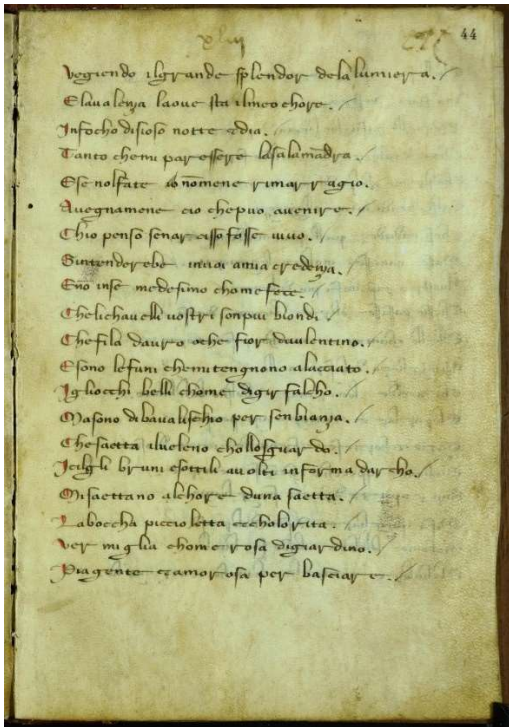 xliiij
44
Vegiendo ilgrande splendor dela lumiera.
E lava lenza laove sta ilmeo chore.
Infocho disioso notte edia.
Tanto chemi par essere lasalamādra.
Ese nolfate io nōmene rimarragio.
Avegnamene cio chepuo avenire.
Chio penso senar cisso fosse vivo.
Enō inse medesimo chome fece.
Chelichavelli vostri sonpiu biondi.
Chefila dauro oche fior daulentino.
Esono lefuni chemitengnono alacciato.
Igliocchi belli chome digirfalcho.
Masono dibavalischio per senbianza.
Chesaetta ilveleno chollosguardo.
Icilgli bruni esottili avolti informa darcho.
Misaettano alchore duna saetta.
Laboccha piccioletta echolorita.
Vermiglia chome rosa digiardino.
Piagente eamorosa per basciare.